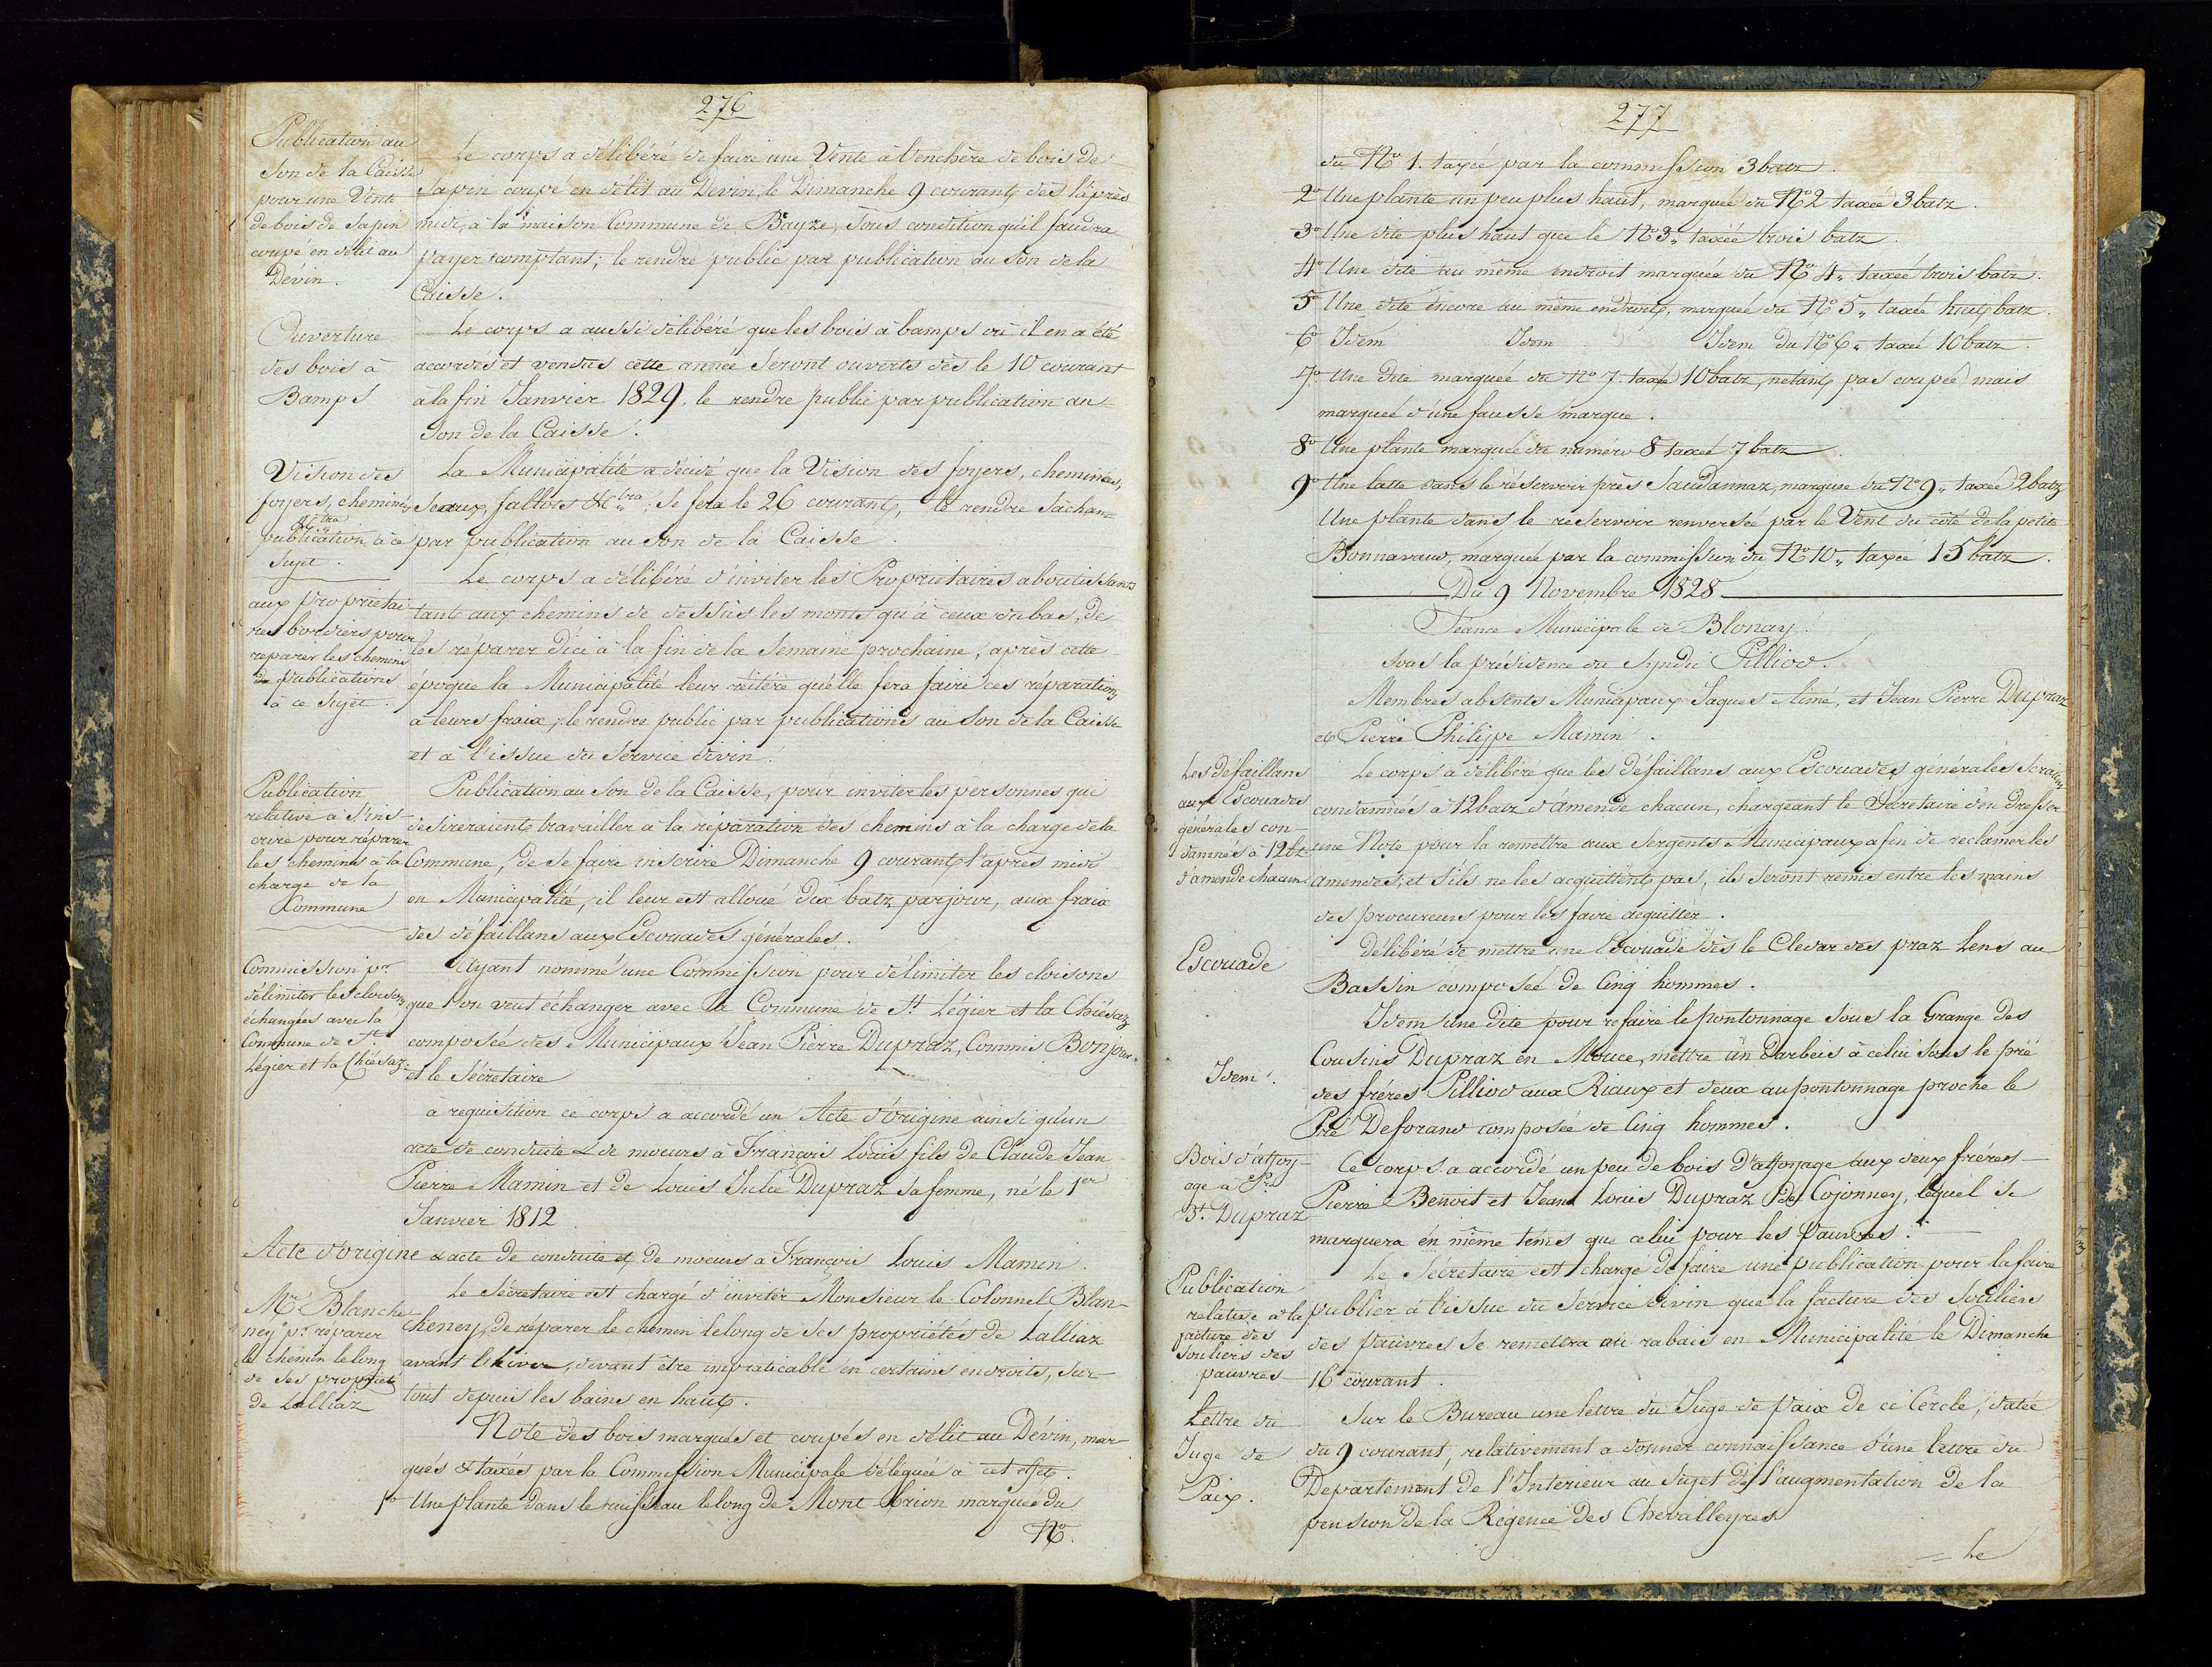 276
Publication au
Son de la Caisse
pour une Vente
de bois de Sapin
coupé en délit au
Dévin.
Le corps a délibéré de faire une Vente à l'enchère de bois de
Sapin coupé en délit au Devin, le Dimanche 9 courant, dès l'après
midi, à la maison Commune de Bayze, sous condition qu'il faudra
payer comptant; le rendre public par publication au son de la
Caisse.
Ouverture
des bois à
Bamps
Le corps a aussi délibéré que les bois à bamps où il en a été
accordés et vendus cette année seront ouverts dès le 10 courant
à la fin Janvier 1829. le rendre public par publication au
son de la Caisse.
Vision des
foyers, cheminées,
&c.tra
publication à ce
sujet.
La Municipalité a décidé que la Vision des foyers, cheminées,
Seaux, fallots &c.tra, se fera le 26 courant, le rendre sachant
par publication au son de la Caisse.
aux proprietai
res bordiers pour
reparer les chemins
de publications
à ce sujet.
Le corps a délibéré d'inviter les Propriétaires aboutissants
tant aux chemins de dessus les monts qu'à ceux du bas, de
les réparer d'ici à la fin de la Semaine prochaine, après cette
époque la Municipalité leur réitère qu'elle fera faire ces réparations
à leurs fraix; le rendre public par publications au son de la Caisse
et à l'issue du Service divin.
Publication
relative à s'ins-
crire pour réparer
les chemins à la
charge de la
Commune
Publication au son de la Caisse, pour inviter les personnes qui
desireraient travailler à la réparation des chemins à la charge de la
Commune, de se faire inscrire Dimanche 9 courant l'après midi
en Municipalité, il leur est alloué dix batz par jour, aux fraix
des défaillans aux Escouades générales.
Commission pr.
délimiter les cloisons
échangées avec la
Commune de St.
Légier et la Chiésaz.
Ayant nommé une Commission pour délimiter les cloisons
que l'on veut échanger avec la Commune de St. Légier et la Chiésaz
composée des Municipaux Jean Pierre Dupraz, Commis Bonjour
et le Sécretaire
à requisition ce corps a accordé un Acte d'origine ainsi qu'un
acte de conduite & de moeurs à François Louis fils de Claude Jean
Pierre Mamin et de Louis Julie Dupraz sa femme, né le 1er
Janvier 1812
Acte d'origine & acte de conduite et de moeurs a François Louis Mamin.
Mr. Blanche
ney pr. réparer
le chemin le long
de ses propriétés
de Lalliaz
Le Sécretaire est chargé d'inviter Monsieur le Colonnel Blan-
cheney, de réparer le chemin le long de ses propriétés de Lalliaz
avant l'hiver, devant être impraticable en certains endroits, sur-
tout depuis les bains en haut.
Note des bois marqués et coupés en délit au Dévin, mar-
qués & taxés par la Commission Municipale déléguée à cet effet.
1o Une plante dans le ruisseau le long de Mont Brion marquée du
No.
277
du No 1. taxée par la commission 3 batz.
2o Une plante un peu plus haut, marquée du No 2 taxée 3 batz.
3o Une dite plus haut que le No 3, taxée trois batz.
4o Une dite au même endroit marquée du No 4, taxée trois batz.
5o Une dite encore au même endroit, marquée du No 5, taxée huit batz.
6o Idem Idem Idem du No 6, taxée 10 batz.
7o Une dite marquée du No 7. taxée 10 batz, n'etant pas coupée mais
marquée d'une fausse marque.
8o Une plante marquée du numéro 8 taxée 7 batz.
9o Une latte dans le réservoir près Saudannaz, marquée du No 9, taxée 2 batz
Une plante dans le reservoir renversée par le Vent du côté de la petite
Bonnavaux, marquée par la commission du No 10, taxée 15 batz.
Du 9 Novembre 1828
Séance Municipale de Blonay.
sous la présidence du Syndic Pilliod.
Membres absents Municipaux Jaques Aimé, et Jean Pierre Dupraz
et Pierre Philippe Mamin.
Les défaillans
aux Escouades
générales con-
damnés à 12 bz.
d'amende chacun.
Le corps a délibéré que les défaillans aux Escouades générales seraient
condamnés à 12 batz d'amende chacun, chargeant le Sécretaire d'en dresser
une Note pour la remettre aux Sergents Municipaux afin de reclamer les
amendes, et s'ils ne les acquittent pas, ils seront remis entre les mains
des procureurs pour les faire acquitter.
Escouade
Délibéré de mettre une Escouade dès le Cledar des praz Lens au
Bassin composée de Cinq hommes.
Idem.
Idem une dite pour refaire le pontonnage sous la Grange des
Cousins Dupraz en Mouce, mettre un darbeis à celui sous le pré
des fréres Pilliod aux Riaux et deux au pontonnage proche le
Pré Deforand composée de Cinq hommes.
Bois d'affoy-
age à Pre.
Bt. Dupraz
Ce corps a accordé un peu de bois d'affoyage aux deux fréres
Pierre Benoit et Jean Louis Dupraz Cojonney, lequel se
marquera en même tems que celui pour les pauvres.
Publication
relative à la
facture des
Souliers des
pauvres
Le Sécretaire est chargé de faire une publication pour la faire
publier à l'issue du Service divin que la facture des Souliers
des pauvres se remettra au rabais en Municipalité le Dimanche
16 courant.
Lettre du
Juge de
Paix.
Sur le Bureau une lettre du Juge de paix de ce Cercle, datée
du 9 courant, relativement a donner connaissance d'une lettre du
Departement de l'Interieur au sujet de l'augmentation de la
pension de la Régence des Chevalleyres
Le